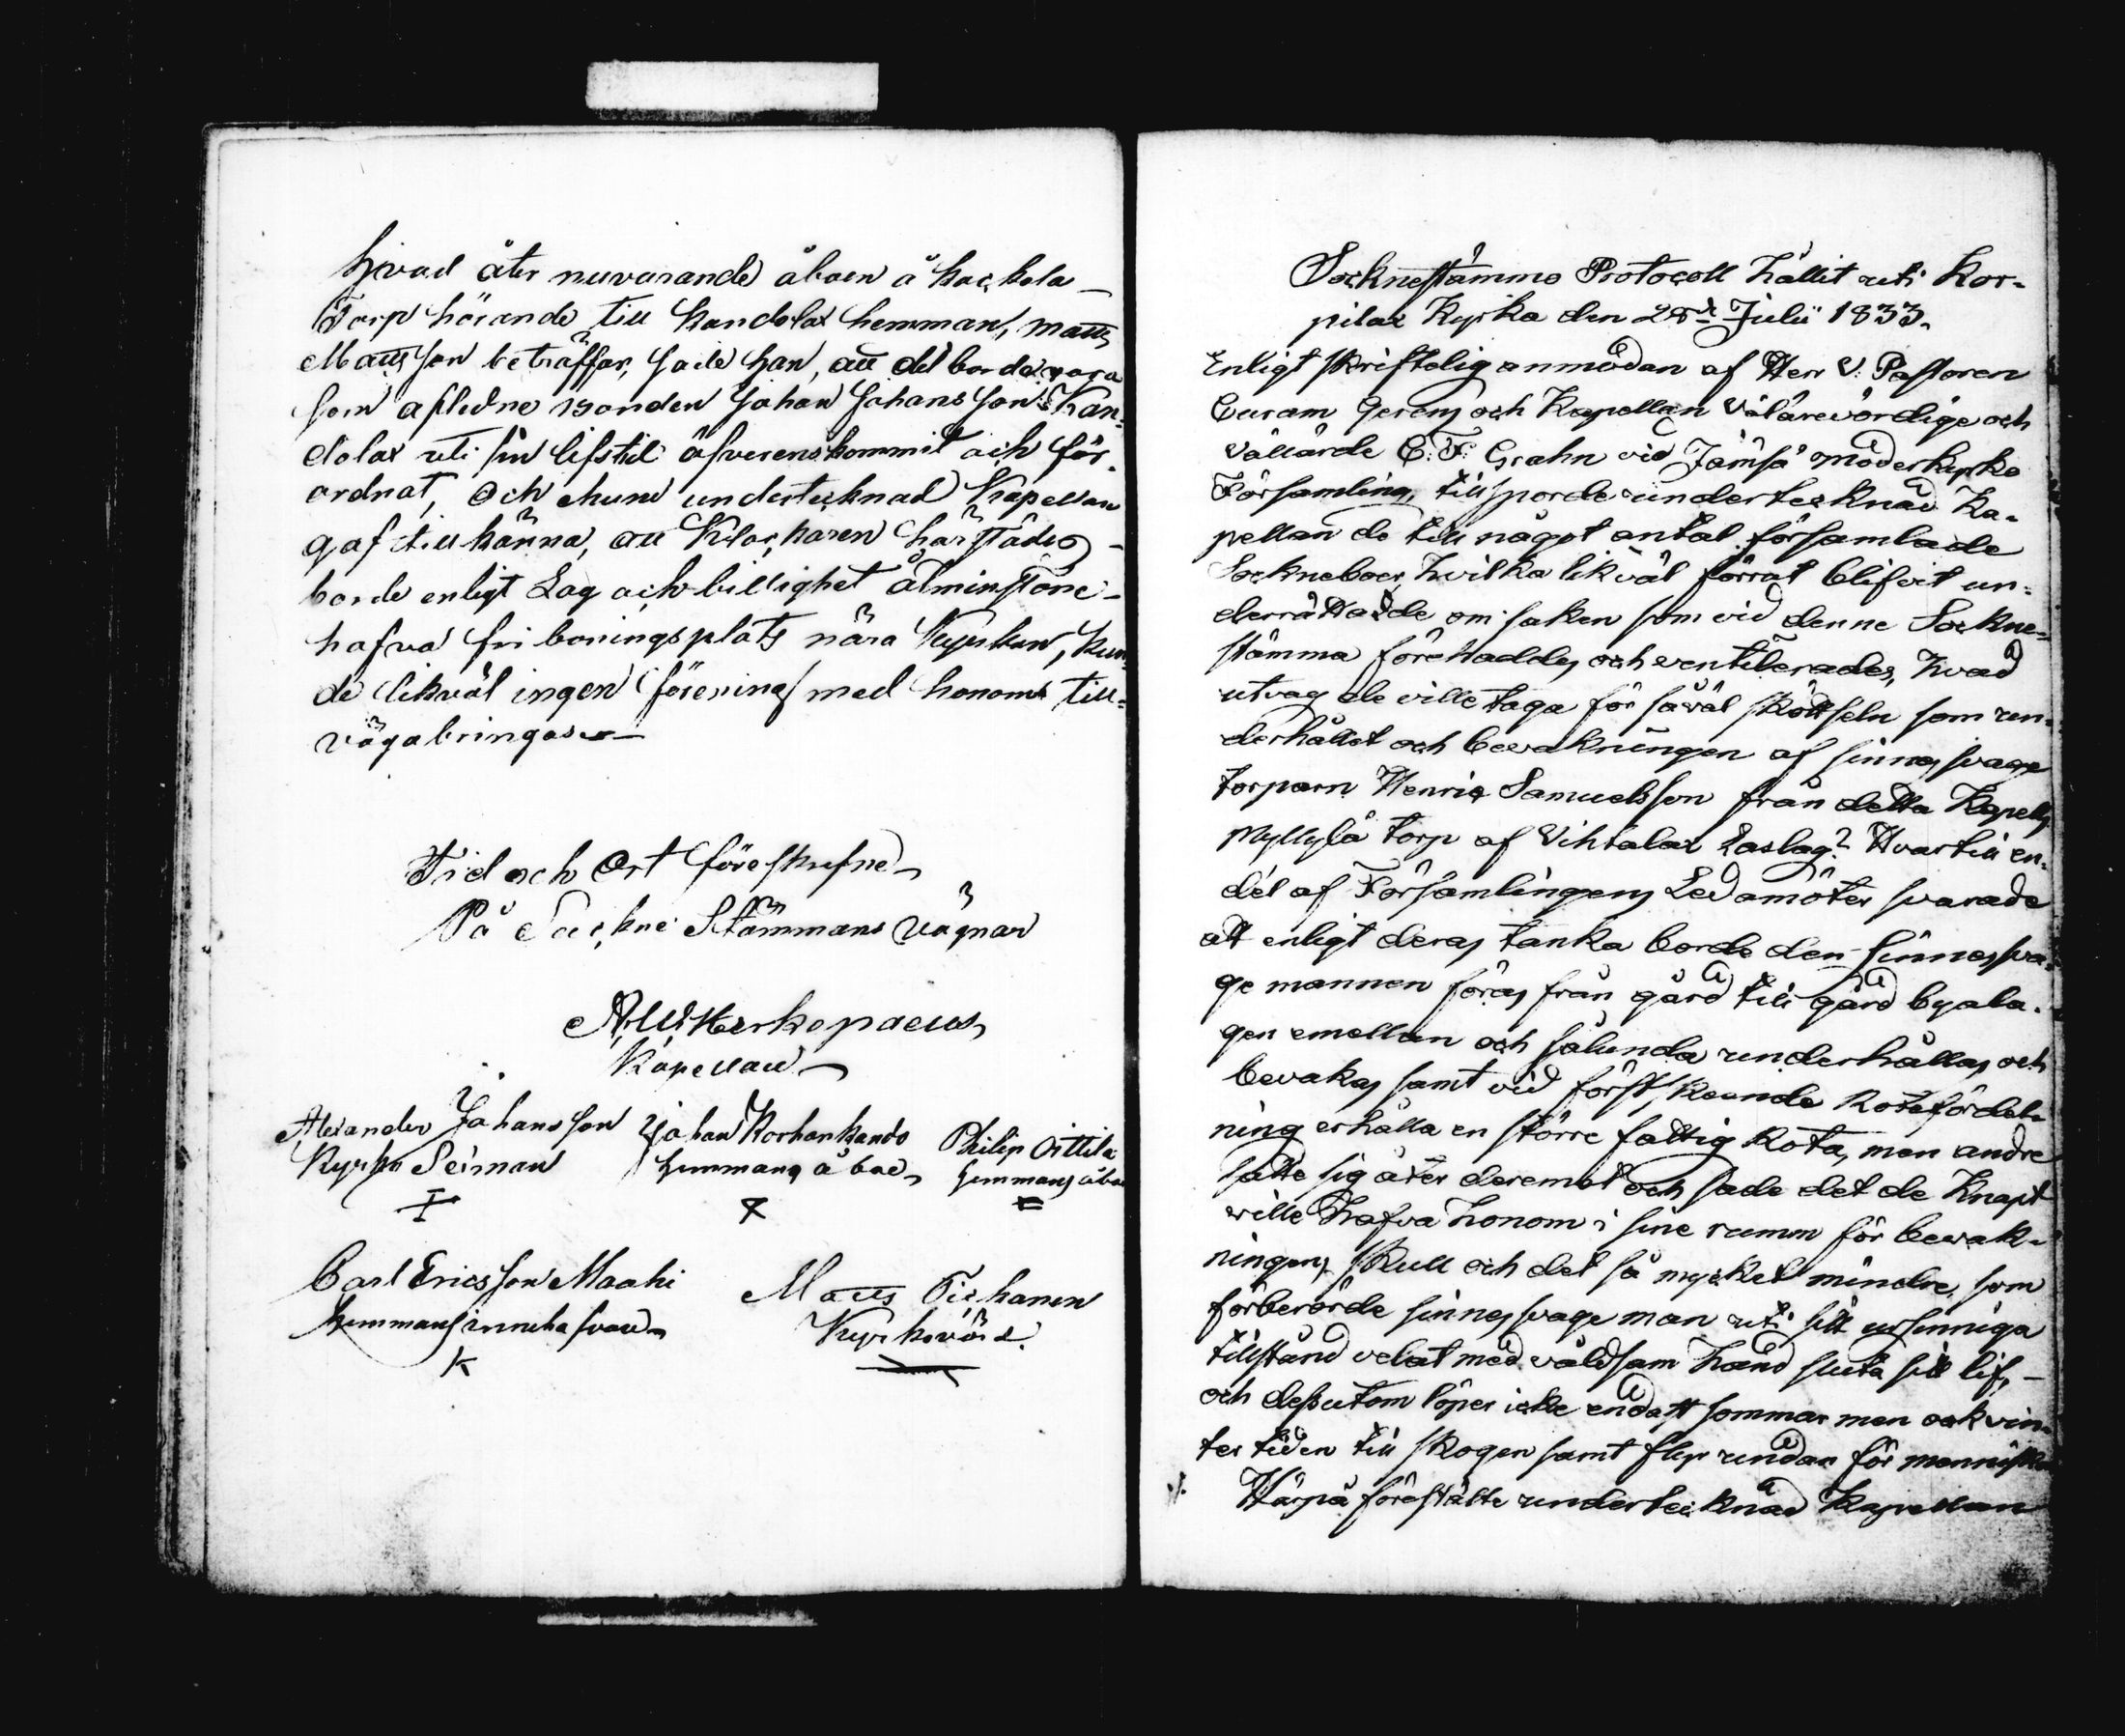 Hvad åter nuvarande åboen å Kackela
Torp hörande till Kandolax hemman, Matts
Mattsson beträffar, sade han, att det borde vara
som aflidne bonden Johan Johansson Kan-
dolax uti sin lifstid öfverenskommit och för-
ordnat, och ehuru undertecknad Kapellan
gaf till känna, att Klockaren härstädes
borde enligt Lag och billighet åtminstone
hafva fri boningsplats nära Kyrkan, kun-
de likväl ingen förening med honom till-
vägabringas.
Tid och Ort föreskrifne
På Sockne Stämmans vägnar
Kapellan
Alexander Johansson Johan Korhonkando Philip Oittila
Kyrko Sexman hemmans åboe hemmans åboe
Carl Ericsson Maahi Matts Tirhonen
hemmansinnehafvare Kyrkovärd.
Socknestämmo Protocoll hållit uti Kor-
pilax Kyrka den 28de Julii 1833.
Enligt skriftelig anmodan af Herr V. Pastoren
Curam Gerens och Kapellan välärevördige och
vällärde C. F. Grahn vid Jämsä moderkyrko
Församling, tillsporde undertecknad Ka-
pellan de till något antal församlade
Sockneboer, hvilka likväl förrat blifvit un-
derrättade om saken som vid denne Sockne-
stämma förehaddes och ventilerades, hvad
utvag de ville taga för såväl skötseln som un-
derhållet och bevakningen af sinnessvage
torparn Henric Samuelsson från detta Kapells
Myllylä torp af Vihtalax Laslag? Hvartill en
del af Församlingens Ledamöter svarade
att enligt deras tanka borde den sinnessva-
ge mannen föras från gård till gård byala-
gen emellan och sålunda underhållas och
bevakas samt vid först skeende Rotefördel-
ning erhålla en större fattig Rota, men andre
satte sig åter deremot och sade det de knapt
ville hafva honom i sine rumm för bevak-
ningens skull och det så mycket mindre, som
förberörde sinnessvage man uti sitt ursinniga
tillstånd velat med våldsam hand sluta sitt lif,
och dessutom löper icke endast sommar men ock vin-
ter tiden till skogen samt flyr undan för menniskor
Härpå förestälte undertecknad Kapellan